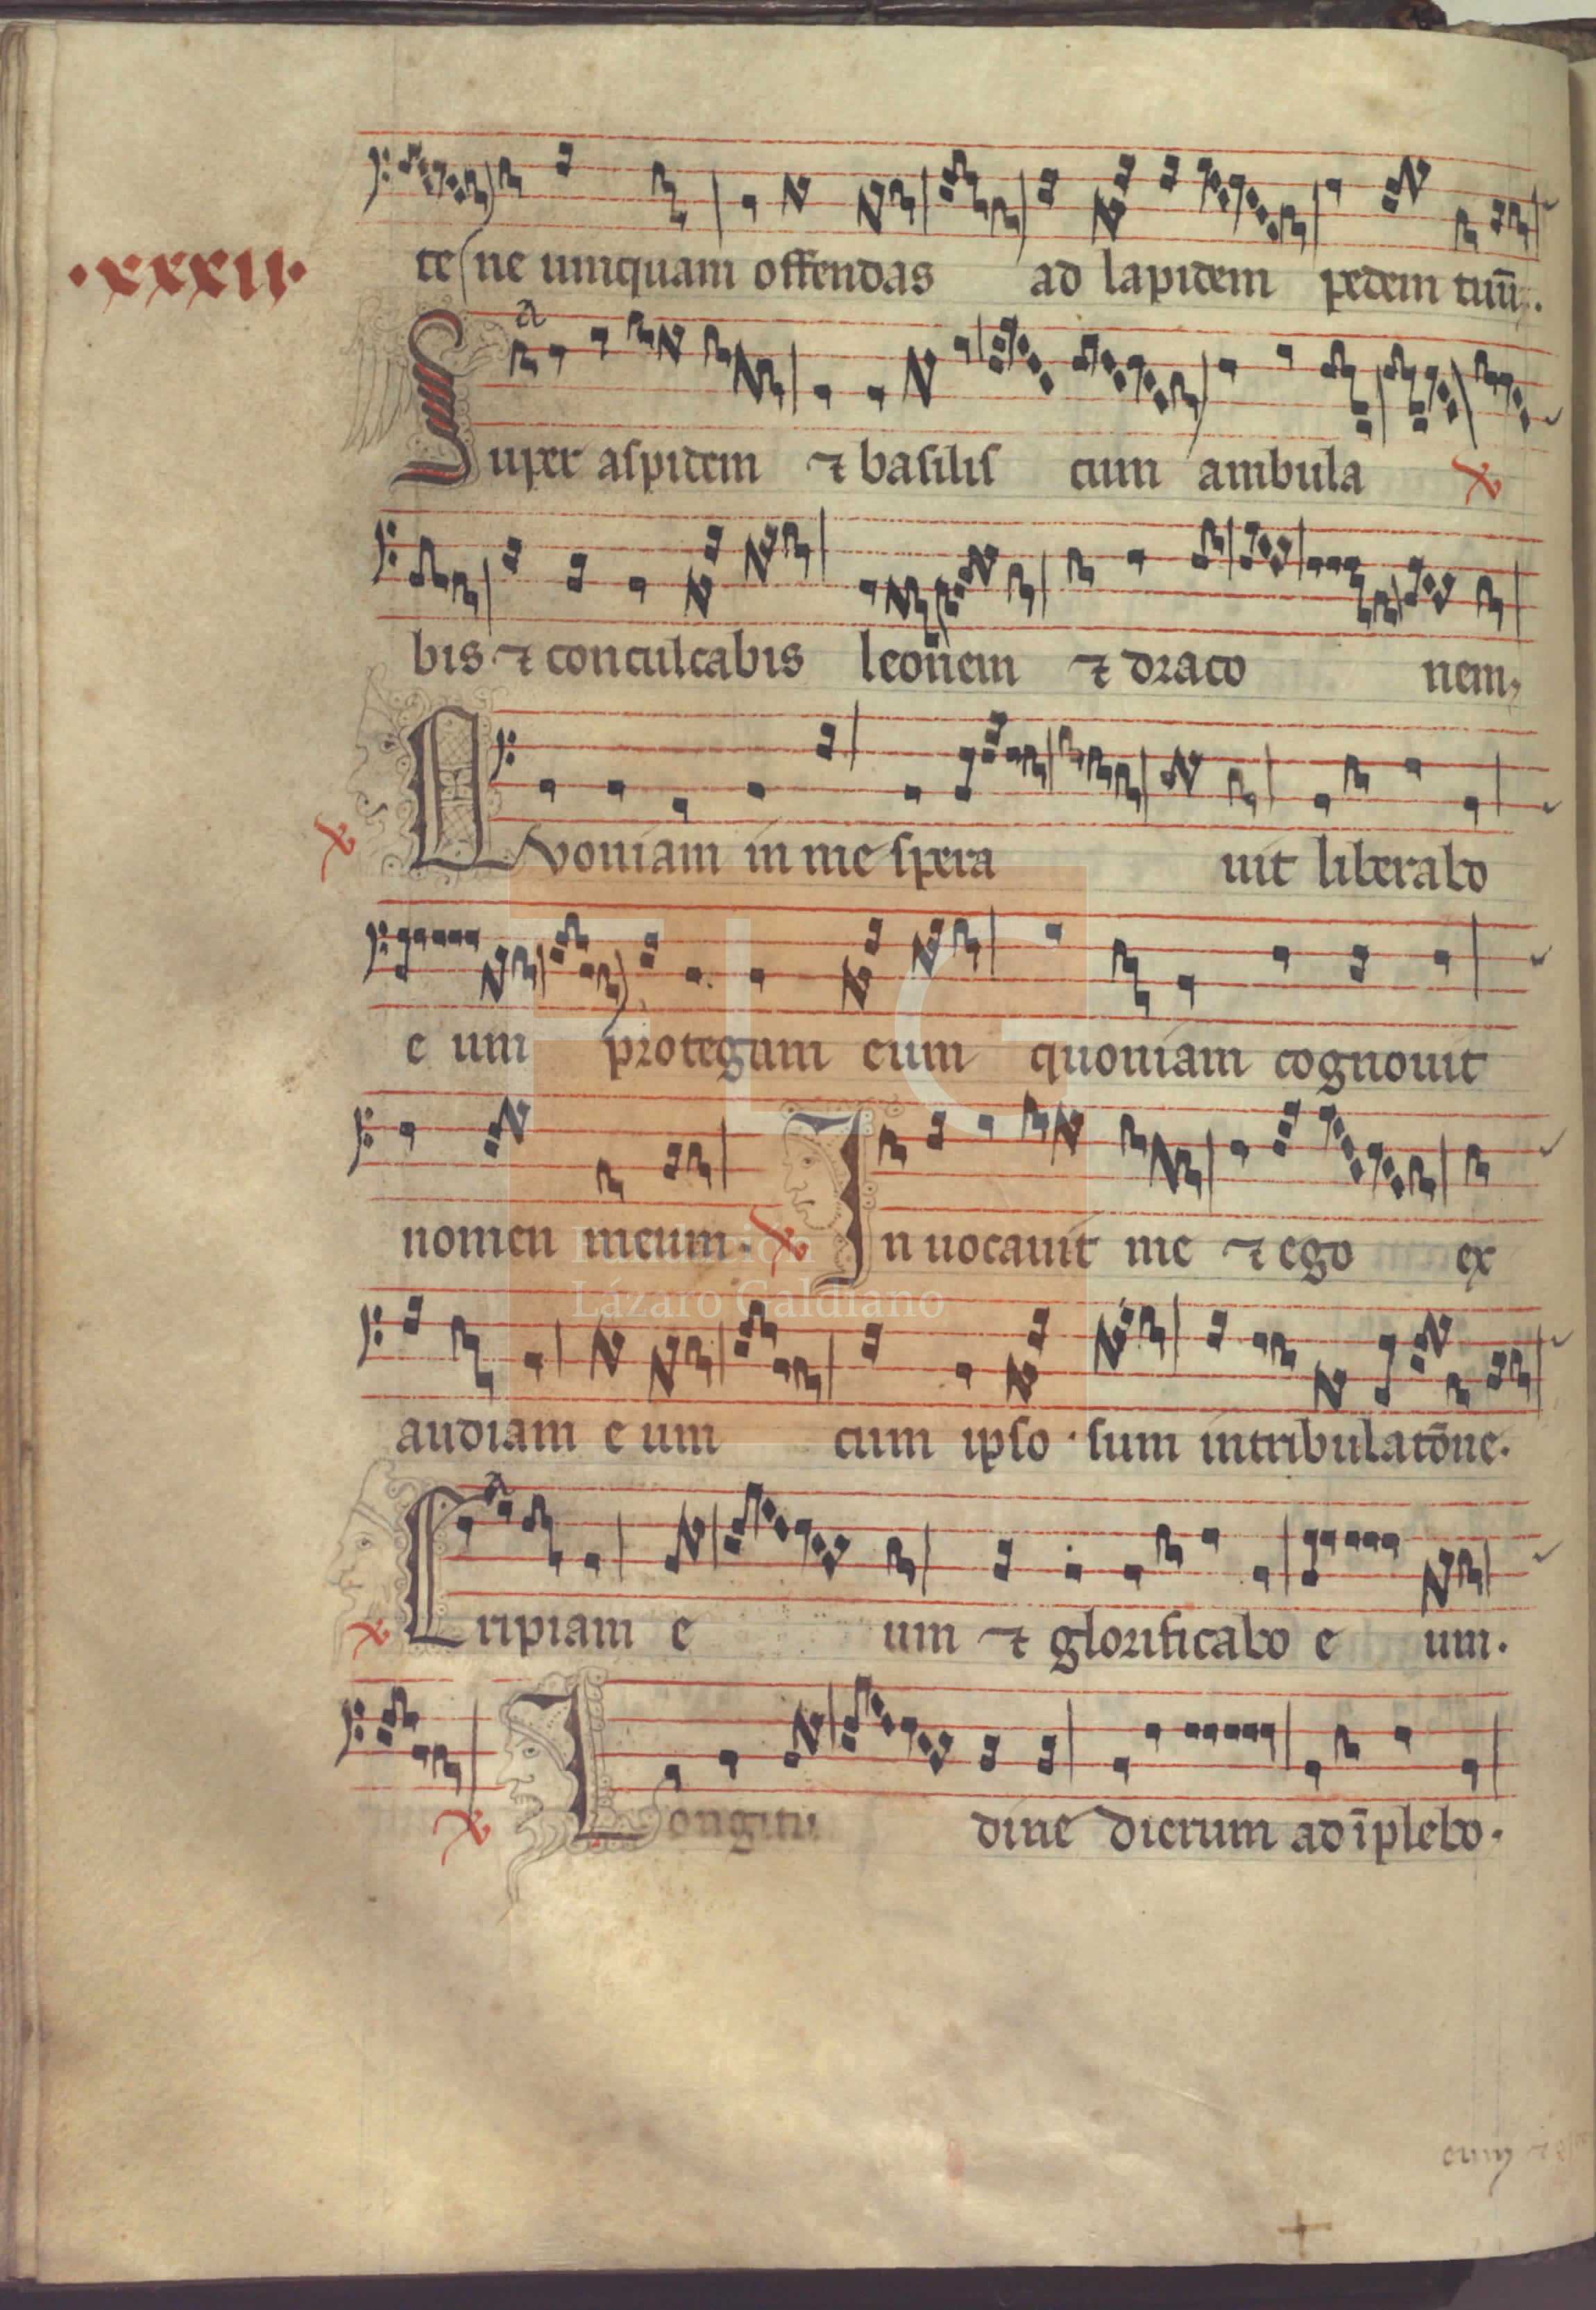 ·xxxii·
te ne umquam offendas ad lapidem pedem tuū.
Super aspidem ⁊ basilis cum ambula
bis ⁊ conculcabis leonem ⁊ draco nem,
Quoniam in me spera uit liberabo
e um protegam eum quoniam cognouit
nomen meum. In uocauit me ⁊ ego ex
audiam e um cum ipso sum intribulatōne.
Eripiam e um ⁊ glorificabo e um.
Longitu dine dierum adīplebo.
FLG
Fundación
Lázaro Galdiano